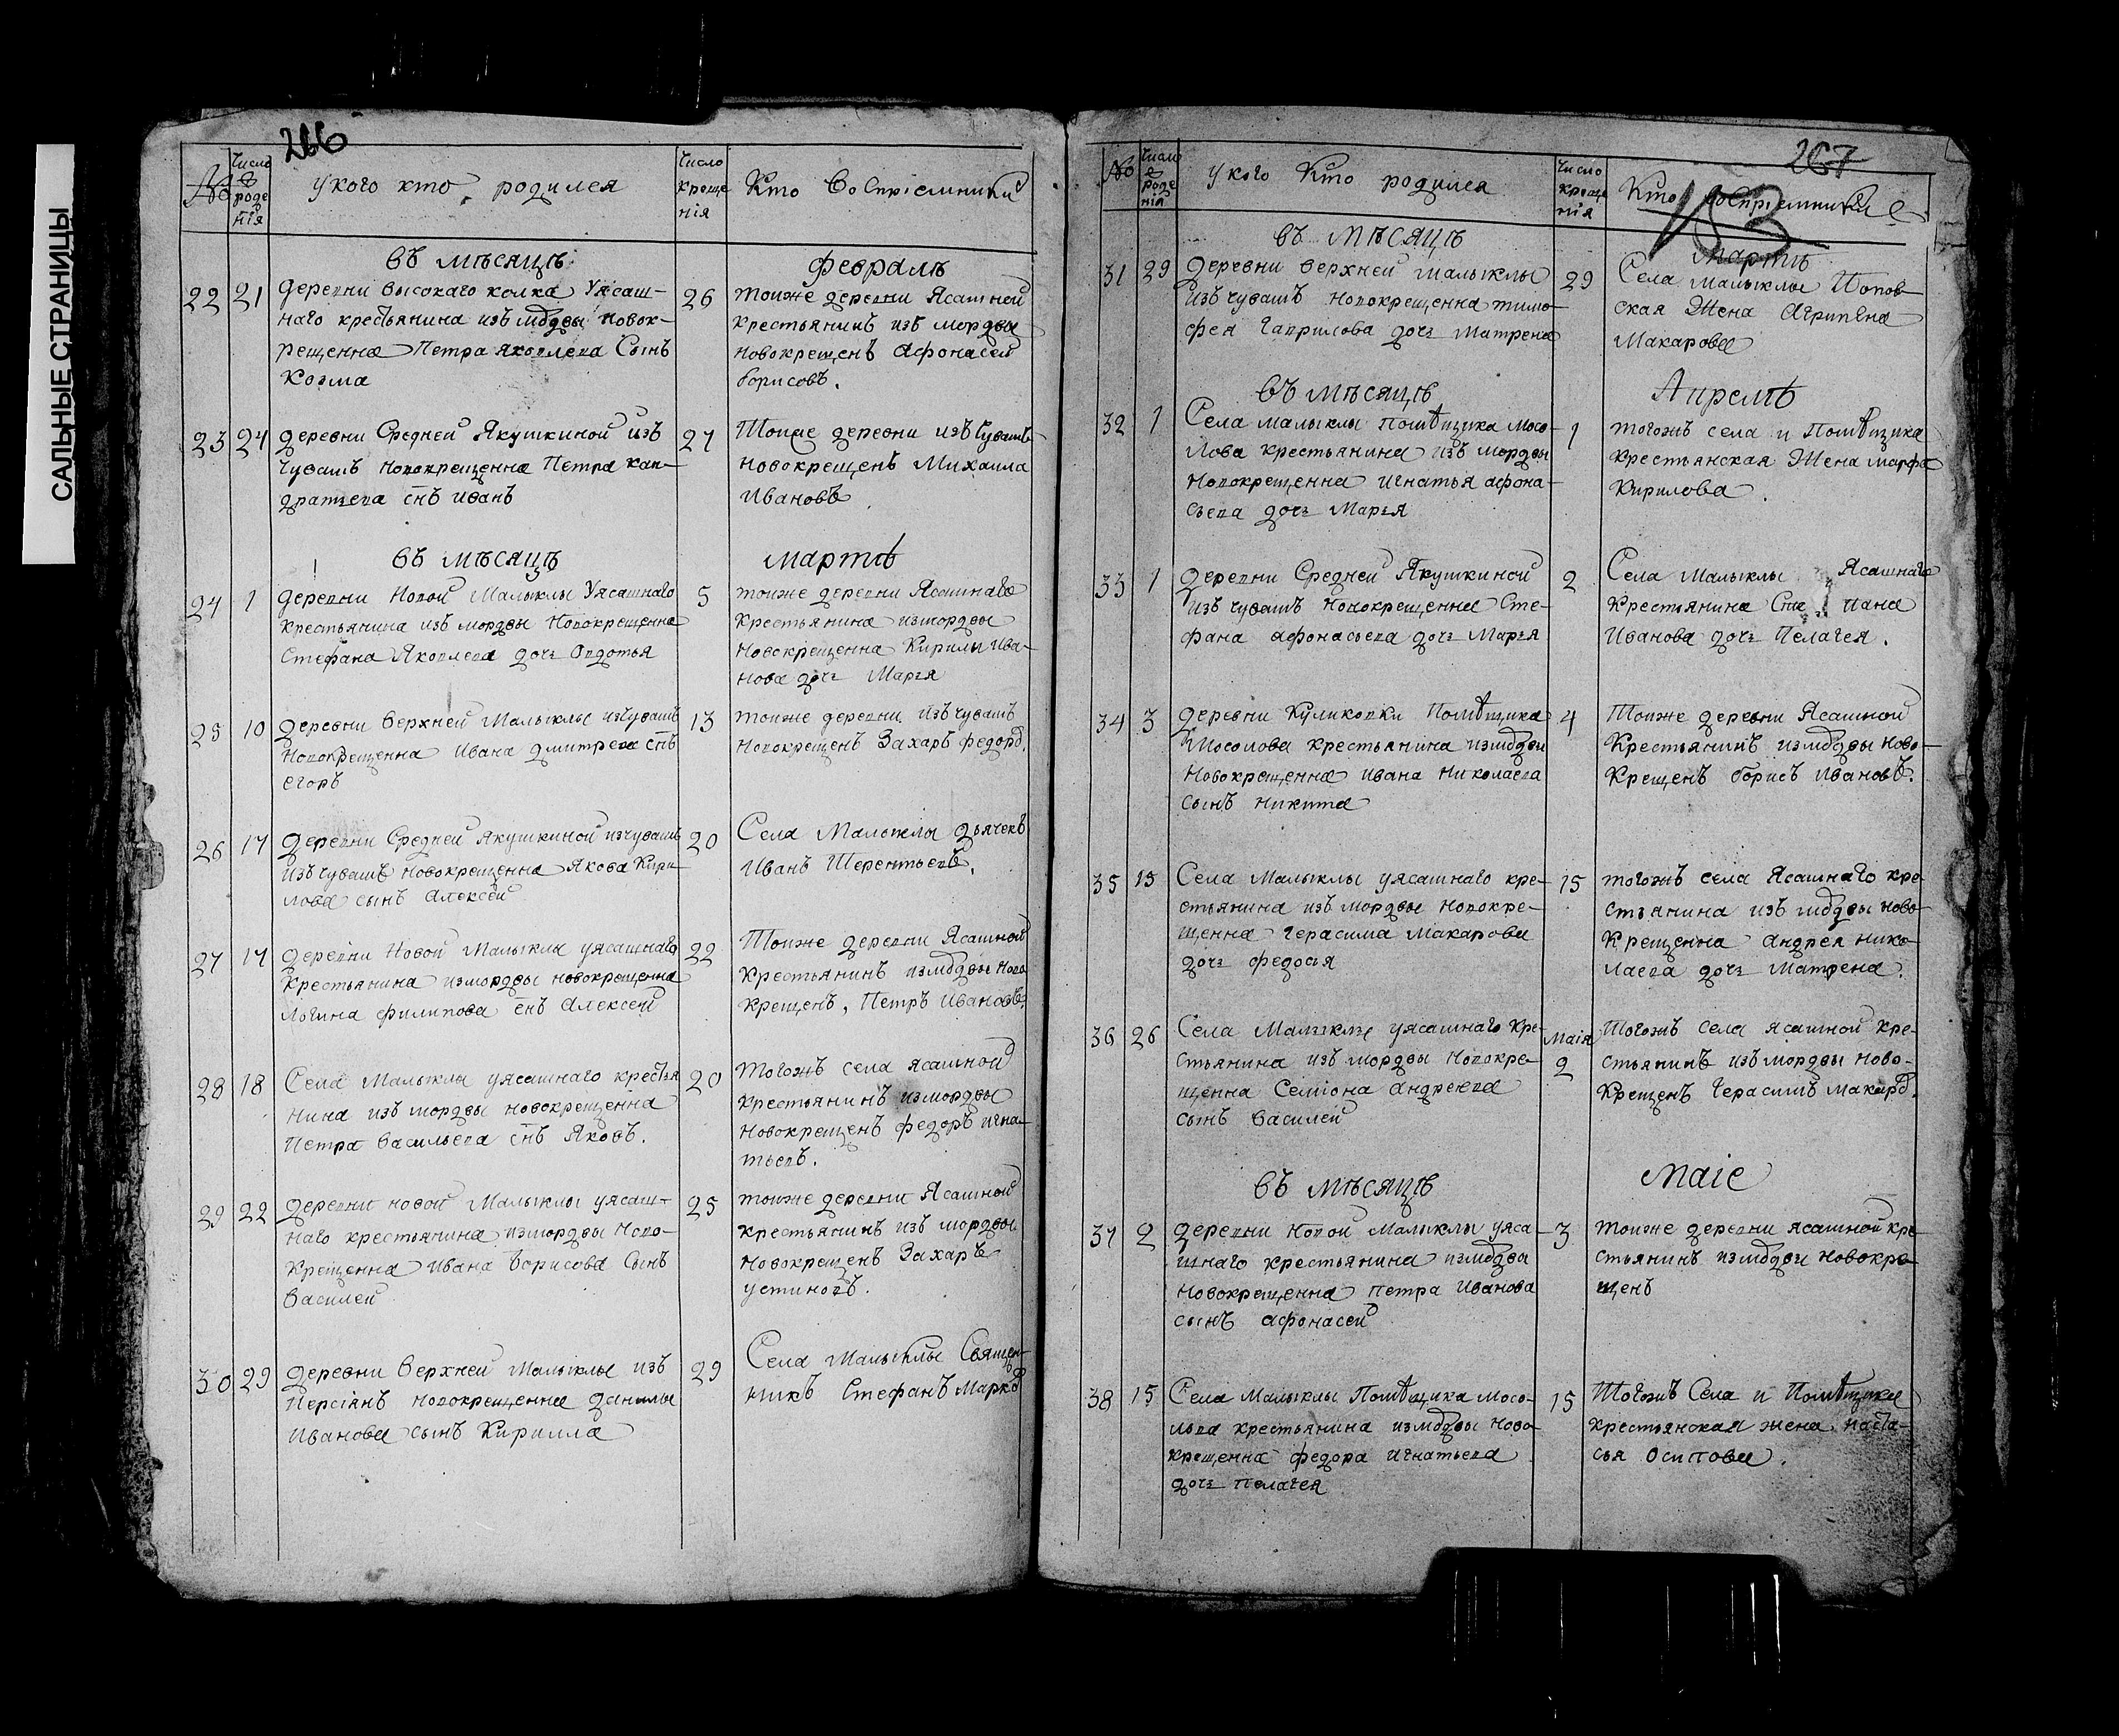 САЛЬНЫЕ СТРАНИЦЫ
266
№
Число роде нія
У кого кто родился
Число креще нія
Кто воспріемники
въ мѣсяцѣ
Февралѣ
22
21
Деревни высокаго колка Уясаш-
наго крестьянина изъ мордвы новок-
рещенна Петра Яковлева Сынъ
Козма
26
тоиже деревни Ясашней
крестьянинъ изъ мордвы
новокрещенъ Афонасей
борисовъ.
23
24
деревни Средней Якушкиной изъ
чувашъ новокрещенна Петра кан-
дратьева снъ иванъ
27
Тоиже деревни изъ Чувашъ
новокрещенъ Михаила
Ивановъ
въ мѣсяцѣ
мартѣ
24
1
деревни Новой Малыклы Уясашнаго
крестьянина изъ мордвы Новокрещенна
Стефана Яковлева дочь Овдотья
5
тоиже деревни Ясашнаго
крестьянина измордвы
новокрещенна Кирилы Ива-
нова дочь Марья
25
10
деревни верхней Малыклы изчувашъ
Новокрещенна Ивана дмитрева снъ
егоръ
13
тоиже деревни изъ чувашъ
новокрещенъ Захаръ федоро.
26
17
деревни Средней Якушкиной изчувашъ
изъ чувашъ новокрещенна Якова Кири-
лова сынъ алексей
20
Села Малыклы дьячекъ
Иванъ Терентьевъ.
27
17
деревни Новой Малыклы уясашнаго
крестьянина измордвы новокрещенна
Логина филипова снъ алексей
22
Тоиже деревни Ясашной
крестьянинъ измордвы ново
крещенъ, Петръ Ивановъ.
28
18
Села Малыклы уясашнаго крестья
нина изъ мордвы новокрещенна
Петра васильева снъ Яковъ.
20
Тогожъ села ясашной
крестьянинъ измордвы
новокрещенъ федоръ игна-
тьевъ.
29
22
деревни новой Малыклы уясаш-
наго крестьянина измордвы ново-
крещенна ивана борисова Сынъ
василей
25
тоиже деревни Ясашной
крестьянинъ изъ мордвы
новокрещенъ Захаръ
устиновъ.
30
29
деревни верхней Малыклы изъ
Персіянъ новокрещенна данилы
Иванова сынъ Кирилла
29
Села Малыклы Священ-
никъ Стефанъ Марко
267
183
№
Число роде нія
У кого Кто родился
Число креще нія
Кто воспріемники
въ мѣсяцѣ
Мартѣ
31
29
деревни верхней малыклы
изъ чувашъ новокрещенна тимо-
фея Гаврилова дочь матрена
29
Села малыклы Попов-
ская Жена Агрипена
Макарова
въ мѣсяцѣ
Апрелѣ
32
1
Села малыклы помѣщика Мосо-
лова крестьянина изъ мордвы
новокрещенна игнатья афона-
сьева дочь Марья
1
тогожъ села и Помѣщика
крестьянская Жена марфа
Кирилова.
33
1
деревни Средней Якушкиной
изъ чувашъ новокрещенна Сте-
фана афонасьева дочь Марья
2
Села Малыклы Ясашнаго
крестьянина
Иванова дочь Пелагея.
34
3
деревни Куликовки Помѣщика
Мосолова крестьянина измордвы
новокрещенна ивана николаева
сынъ никита
4
Тоиже деревни Ясашной
Крестьянинъ измордвы ново-
крещенъ борисъ ивановъ.
35
15
Села Малыклы уясашнаго кре-
стьянина изъ мордвы новокре-
щенна Герасима макарова
дочь федосья
15
тогожъ села Ясашнаго кре
стьянина изъ мордвы ново-
крещенна андрея нико-
лаева дочь Матрена.
36
26
Села Малыклы уясашнаго кре-
стьянина изъ мордвы новокре-
щенна Семіона андреева
сынъ василей
Маія
2
Тогожъ села ясашной кре-
стьянинъ изъ мордвы ново-
крещенъ Герасимъ макаро.
въ мѣсяцѣ
Маіе
37
2
деревни новой Малыклы уяса-
шнаго крестьянина измордвы
новокрещенна Петра Иванова
сынъ афонасей
3
тоиже деревни ясашной кре
стьянинъ измордвы новокре-
щенъ
38
15
Села Малыклы Помѣщика Мосо-
лова крестьянина измордвы ново-
крещенна федора игнатьева
дочь пелагея
15
Тогожъ Села и Помѣщика
крестьянская жена наста-
сья осипова.